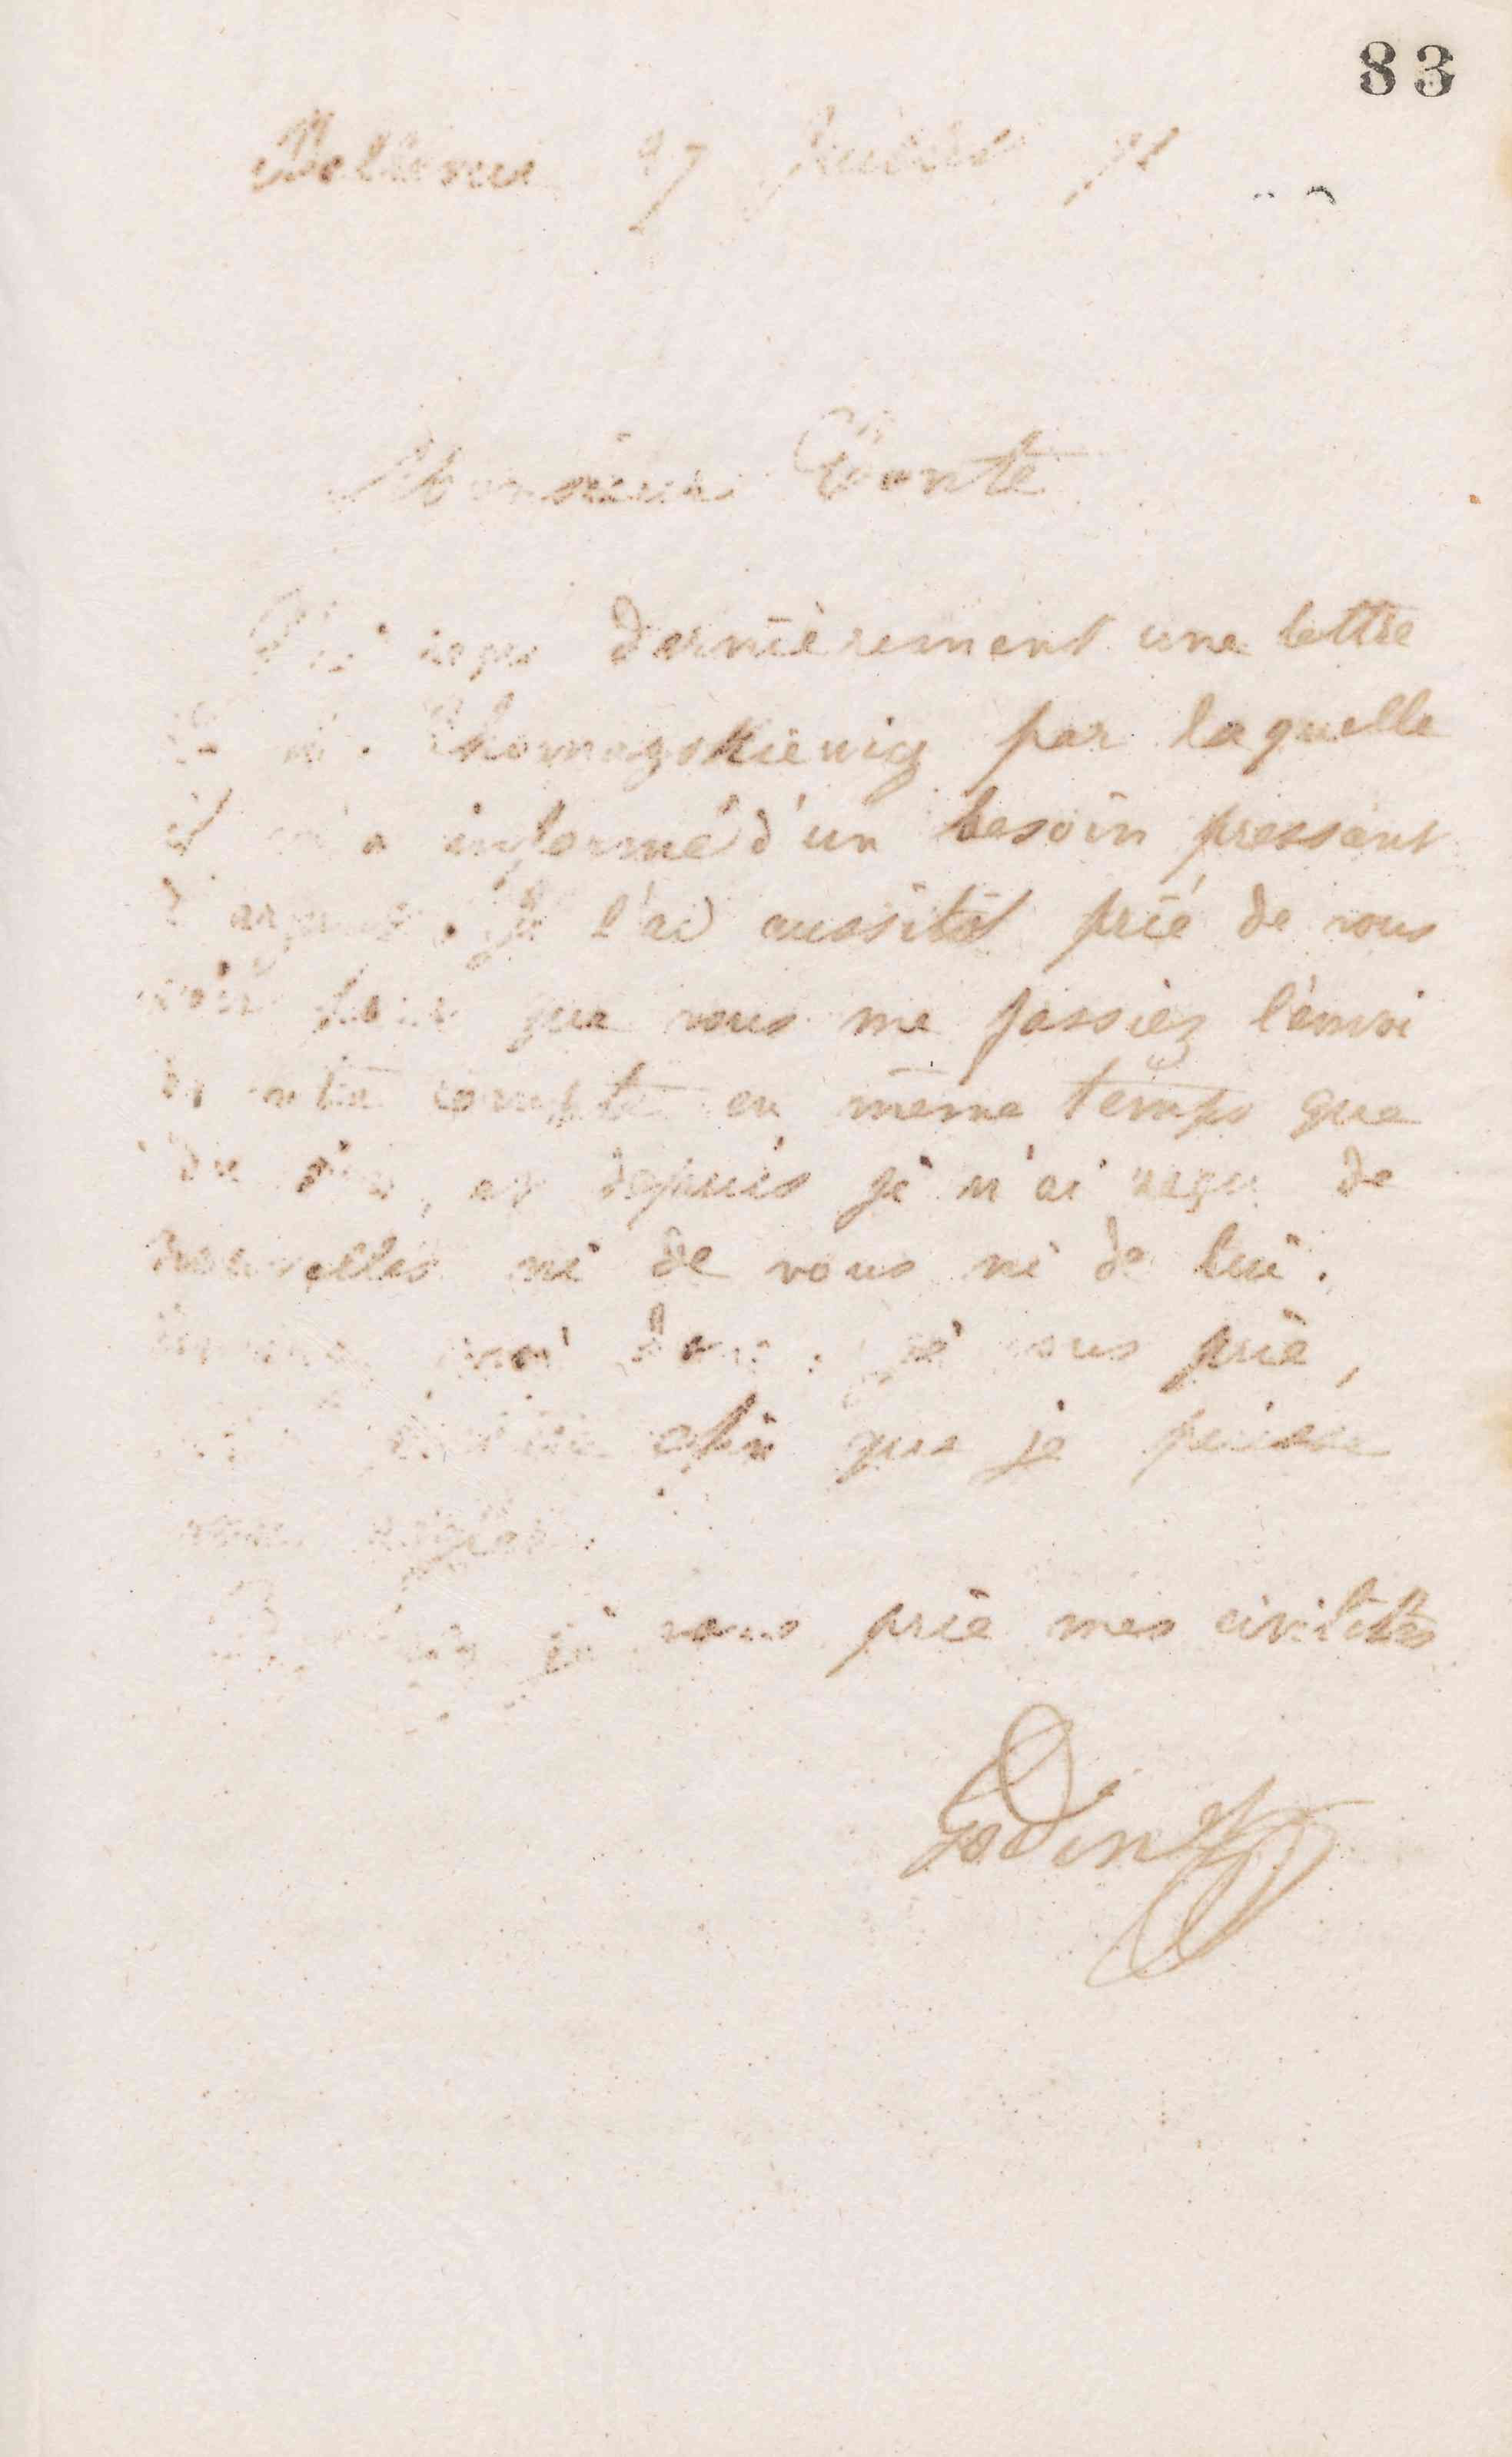 83
Bellevue 27 Juillet 71
Monsieur Conte
J'ai reçu dernièrement une lettre
de M. Chomazskiewicz par laquelle
il m'a informé d'un besoin pressant
d'argent. Je l'ai aussitôt prié de vous
voir pour que vous me fassiez l'envoi
de votre compte en même temps que
du sien, et depuis je n'ai reçu de
nouvelles ni de vous ni de lui.
donc je vous prie,
afin que je puisse
vous régler.
je vous prie mes civilités
Godin